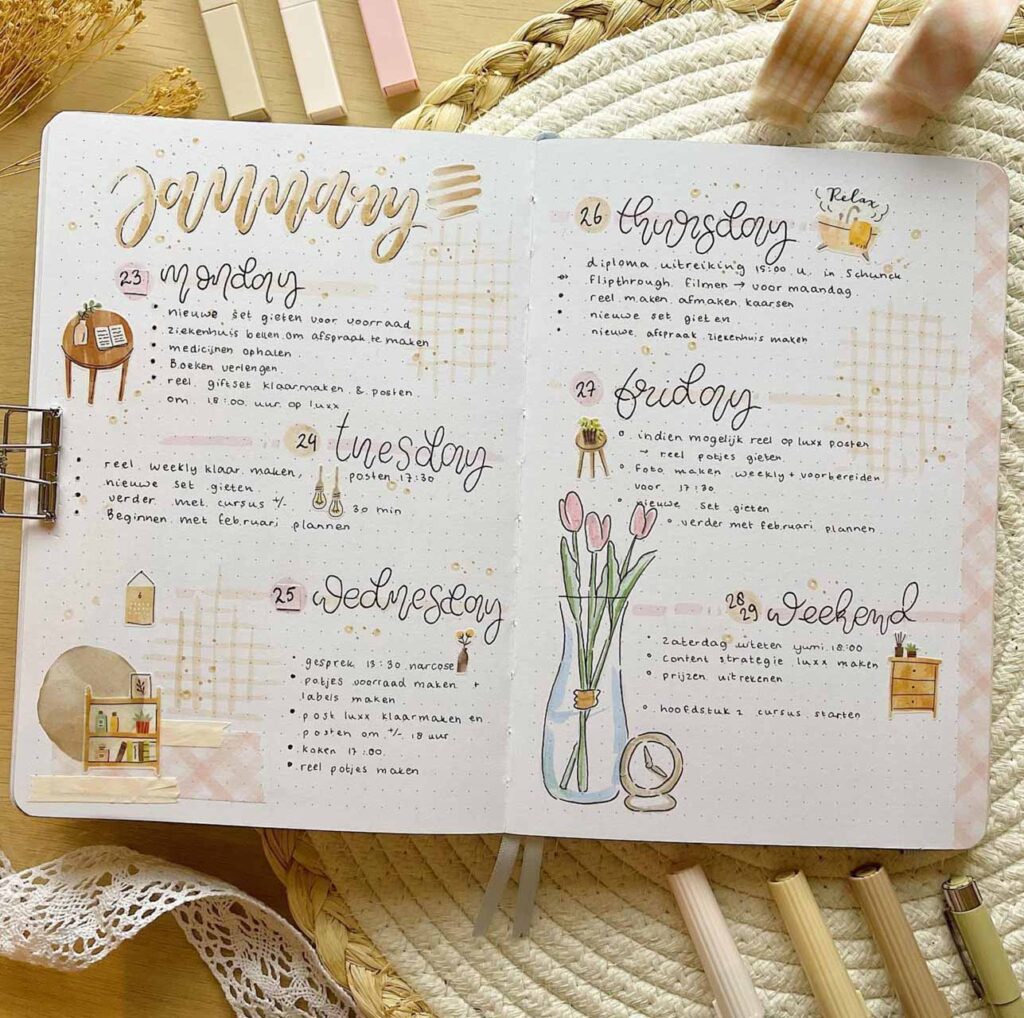 January
23 monday
• nieuwe set gieten voor voorraad
• ziekenhuis bellen om afspraak te maken
• medicijnen ophalen
• Boeken verlengen
• reel giftset klaarmaken & posten
om 18:00 uur op luxx
24 tuesday
• reel weekly klaar maken, posten 17:30
• nieuwe set gieten
• verder met cursus +/- 30 min
• Beginnen met februari plannen
25 wednesday
• gesprek 13:30 narcose
• potjes voorraad maken +
labels maken
• post luxx klaarmaken en
posten om +/- 18 uur
• koken 17:00
• reel potjes maken
6
26 thursday
Relax
• diploma uitreiking 15:00 u. in Schunck
flipthrough filmen → voor maandag
• reel maken afmaken kaarsen
• nieuwe set gieten
• nieuwe afspraak ziekenhuis maken
27 friday
° indien mogelijk reel op luxx posten
→ reel potjes gieten
° foto maken weekly + voorbereiden
voor 17:30
° nieuwe set gieten
° verder met februari plannen
28
29 weekend
° zaterdag uiteten yumi 18:00
° content strategie luxx maken
° prijzen uitrekenen
° hoofdstuk 2 cursus starten